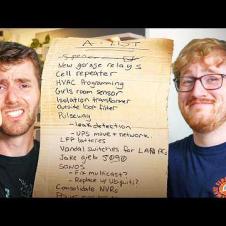 A-LIST
New garage relays
Cell repeater
HVAC Programming
Girls room sensor
Isolation transformer
Outside loop filter
Pulseway
- Leak detection
- UPS move + network
LFP batteries
Vandal switches for LAN PCs
Jake gieb 5090
SONOS
- Fix multicast?
- Replace w/ Ubiquiti?
Consolidate NVRs